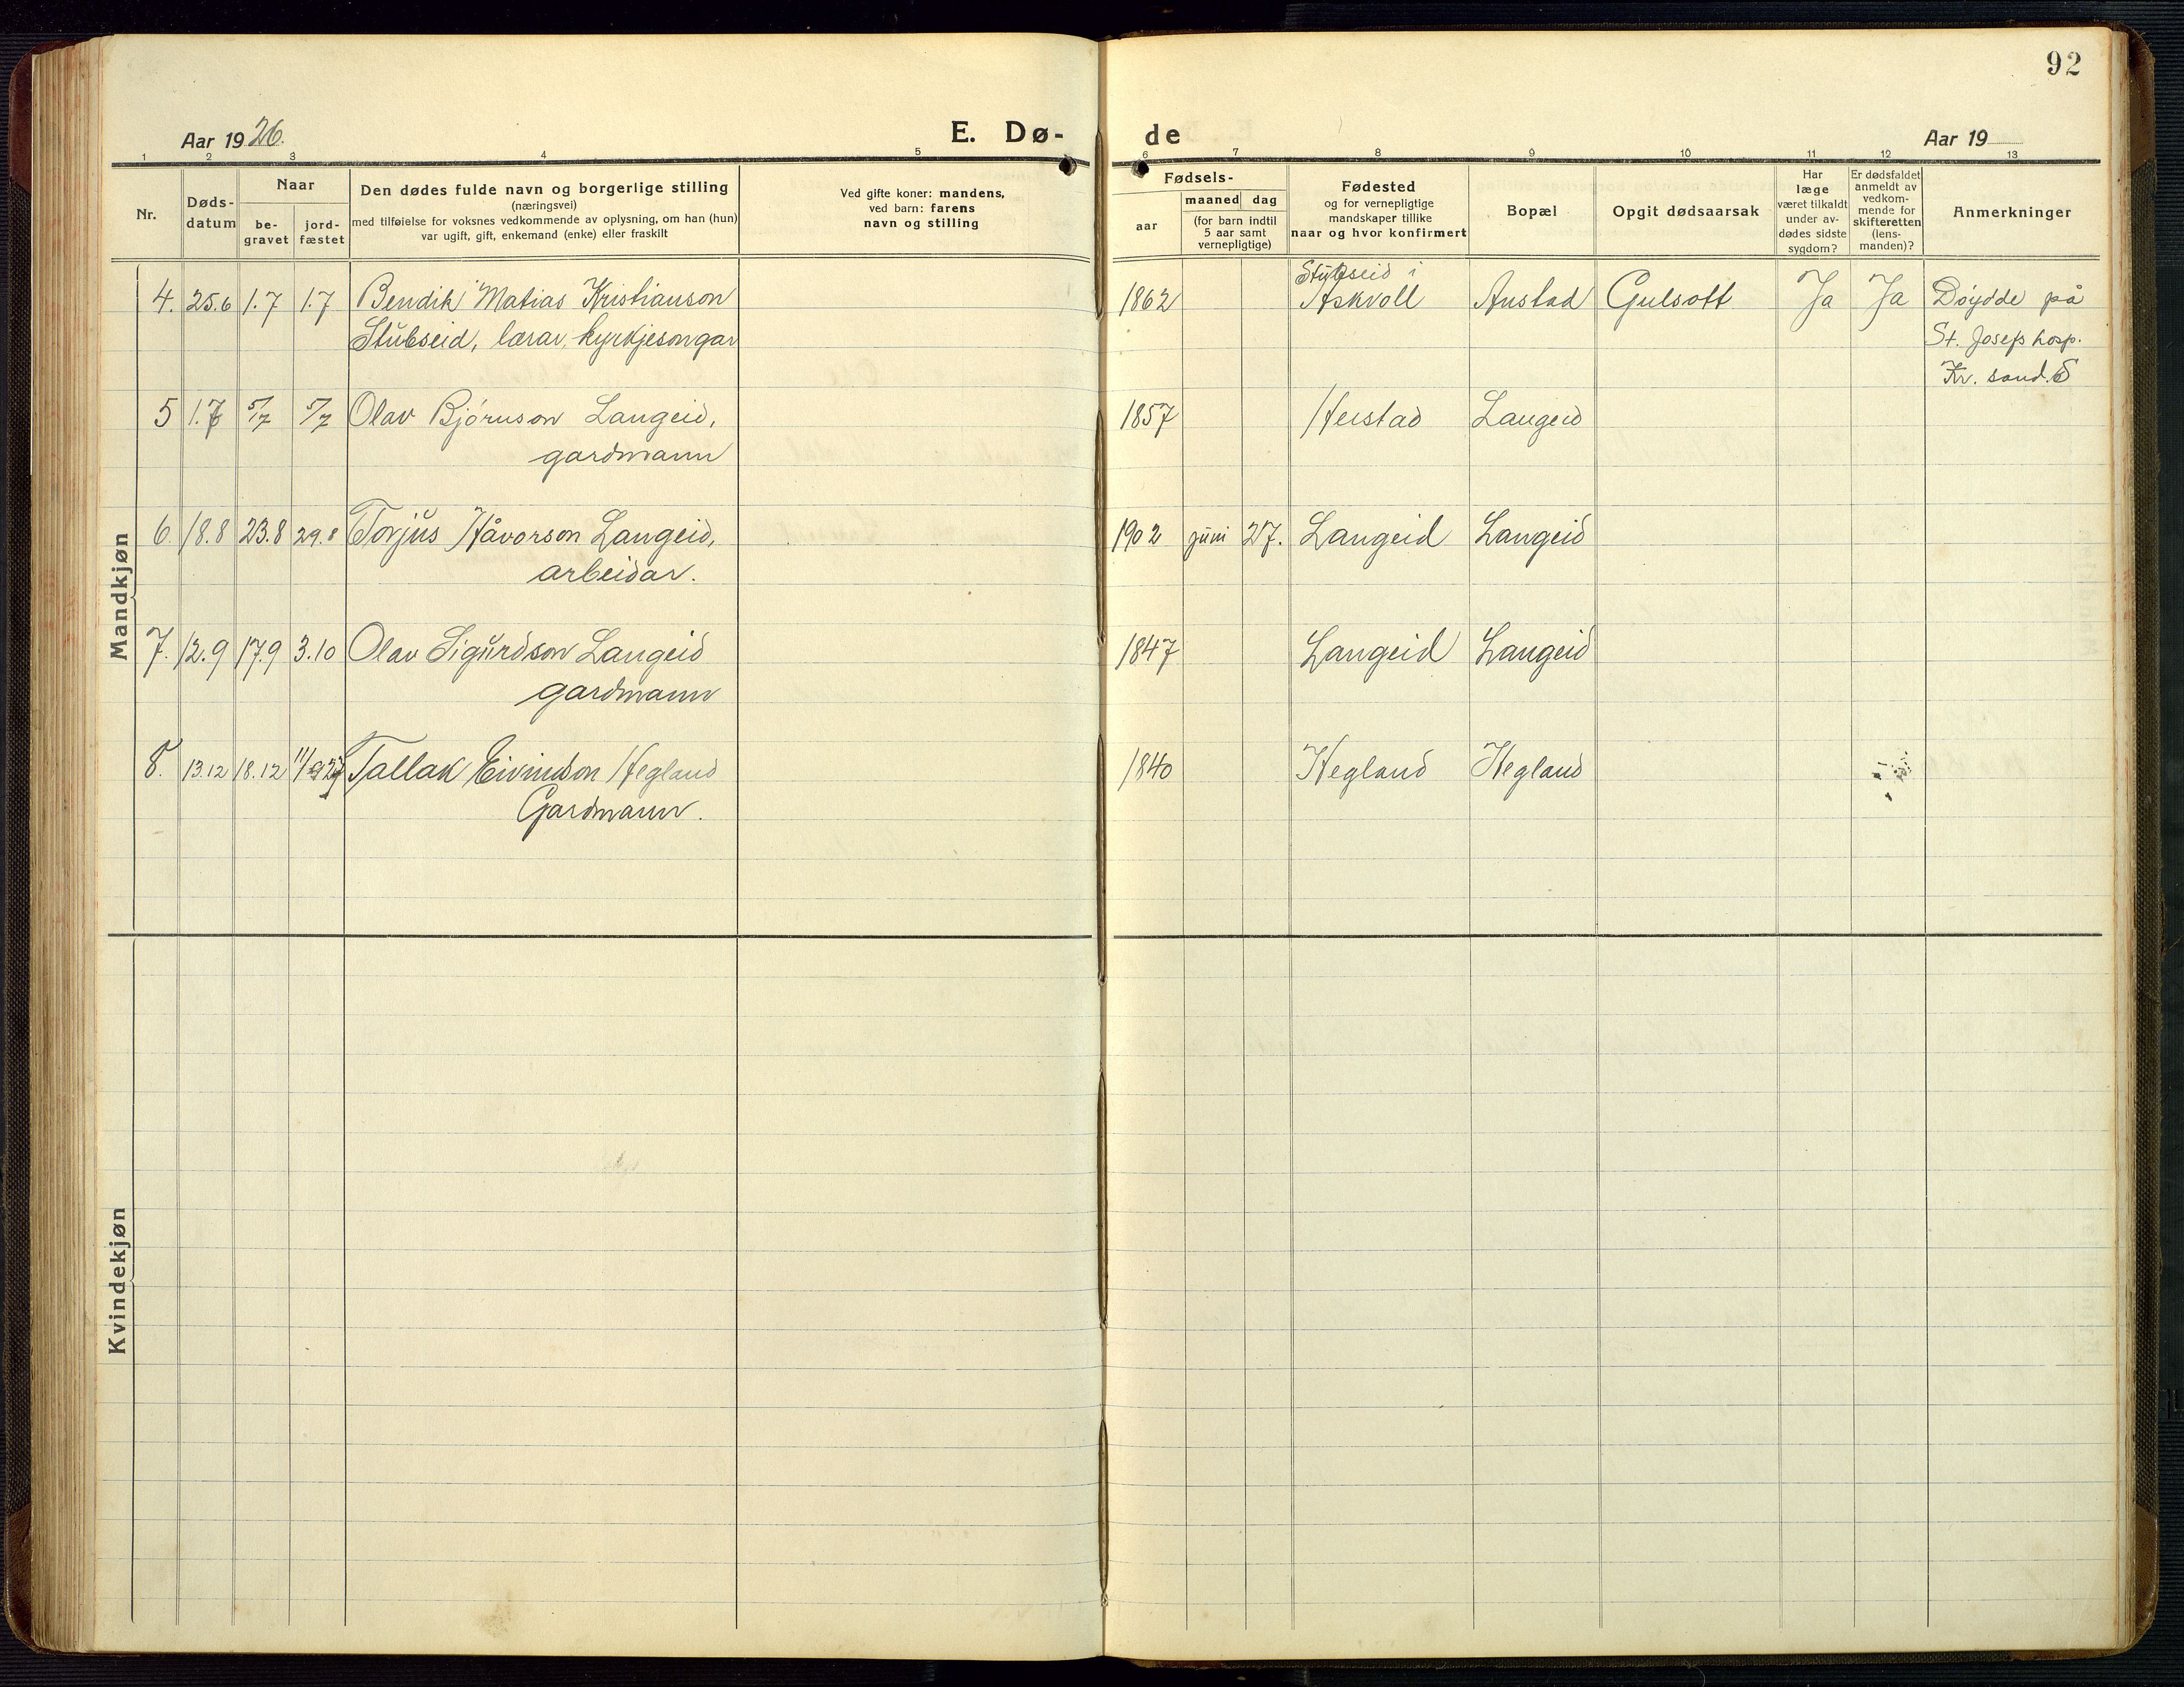 92
Aar 1926.
E. Dø-
de
Aar 19
1 2 3 4 5 6 7 8 9 10 11 12 13
Nr.
Døds-
datum
Naar
be-
gravet
jord-
fæstet
Den dødes fulde navn og borgerlige stilling
(næringsvei)
med tilføielse for voksnes vedkommende av oplysning, om han (hun)
var ugift, gift, enkemand (enke) eller fraskilt
Ved gifte koner: mandens,
ved barn: farens
navn og stilling
Fødsels-
aar
maaned dag
(for barn indtil
5 aar samt
vernepligtige)
Fødested
og for vernepligtige
mandskaper tillike
naar og hvor konfirmert
Bopæl
Opgit dødsaarsak
Har
læge
været tilkaldt
under av-
dødes sidste
sygdom?
Er dødsfaldet
anmeldt av
vedkom-
mende for
skifteretten
(lens-
manden)?
Anmerkninger
Mandkjøn
4. 25.6 1.7 1.7 Bendik Matias Kristianson
Stubseid, lærar, kyrkjesongar
1862 Stubseid i
Askvoll Austad Gulsott Ja Ja Døydde på
St. Josefs hosp.
Kr. sand. S
5 1.7 5/7 5/7 Olav Bjørnson Langeid,
gardmann
1857 Heistad Langeid
6. 18.8 23.8 29.8 Torjus Håvorson Langeid,
arbeidar.
1902 juni 27. Langeid Langeid
7. 12.9 17.9 3.10 Olav Sigurdson Langeid
gardmann
1847 Langeid Langeid
8. 13.12 18.12 Tallak Eivindson Hegland
Gardmann.
1840 Hegland Hegland
Kvindekjøn